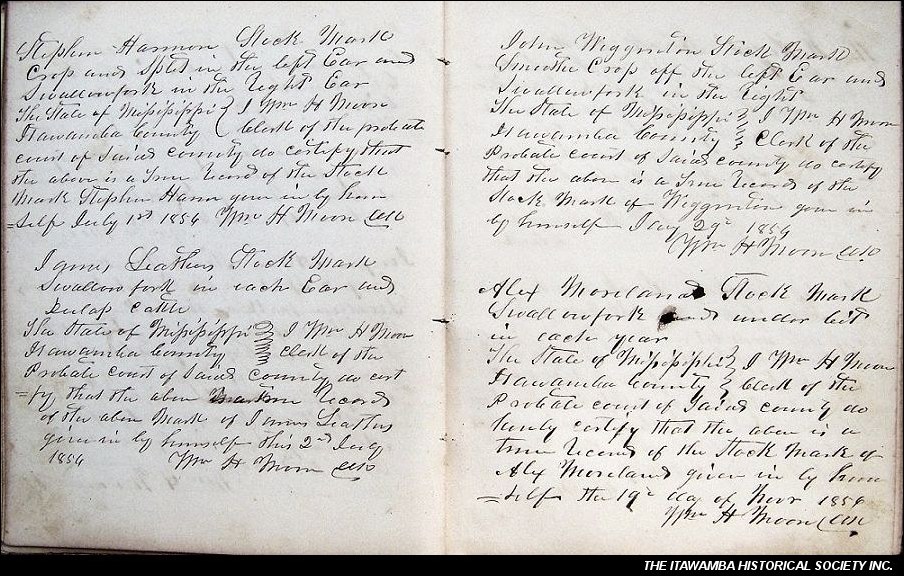 Stephen Harmon Stock Mark
Crop and Split in the left Ear and
Swallowfork in the right Ear
The State of Mississippi } I Wm H Moon
Itawamba County } Clerk of the probate
court of Said county do certify that
the above is a True Record of the Stock
Mark Stephen Harmon given in by him
=Self July 1st 1854 Wm H Moon Clk
James Leathers Stock Mark
Swallow fork in each Ear and
Dulap Cattle
The State of Mississippi } I Wm H Moon
Itawamba County } Clerk of the
Probate Court of Said County do cert
=fy that the above Record
of the above Mark of James Leathers
given in by himself this 2nd July
1854 Wm H Moon Clk
John Wigginton Stock Mark
Smooth Crop off the left Ear and
Swallowfork in the right
The State of Mississippi } I Wm H Moon
Itawamba County } Clerk of the
Probate court of Said county do certify
that the above is a True Record of the
Stock Mark of Wigginton given in
by himself 29th 1854
Wm H Moon Clk
Alex Moreland Stock Mark
Swallowfork and under bit
in each year
The State of Mississippi } I Wm H Moon
Itawamba County } Clerk of the
Probate court of Said county do
hereby certify that the above is a
true Record of the Stock Mark of
Alex Moreland given in by him
=self the 19th day of Novr 1854
Wm H Moon Clk
THE ITAWAMBA HISTORICAL SOCIETY INC.